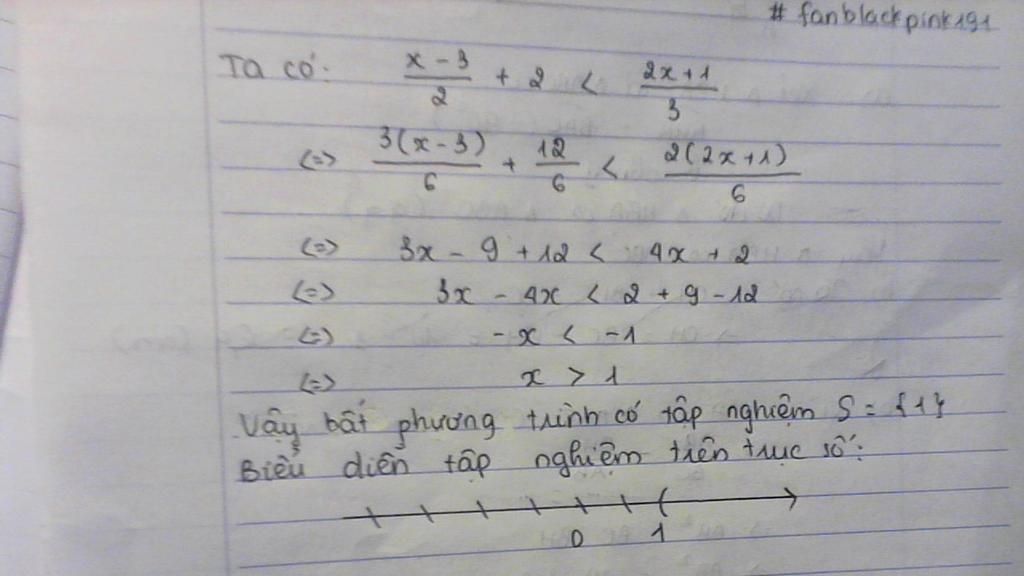 # fanblackpink191
Ta có: \frac{x-3}{2} + 2 < \frac{2x+1}{3}
<=> \frac{3(x-3)}{6} + \frac{12}{6} < \frac{2(2x+1)}{6}
<=> 3x - 9 + 12 < 4x + 2
<=> 3x - 4x < 2 + 9 - 12
<=> -x < -1
<=> x > 1
Vậy bất phương trình có tập nghiệm S = {1}
Biểu diễn tập nghiệm trên trục số:
0 1